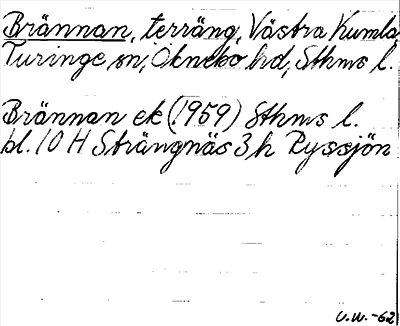 Brännan, terräng, Västra Kumla,
Turinge sn, Öknebo hd, Sthms l.
Brännan ek (1959) Sthms l.
bl. 10 H Strängnäs 3 h Ryssjön
U.W.-62